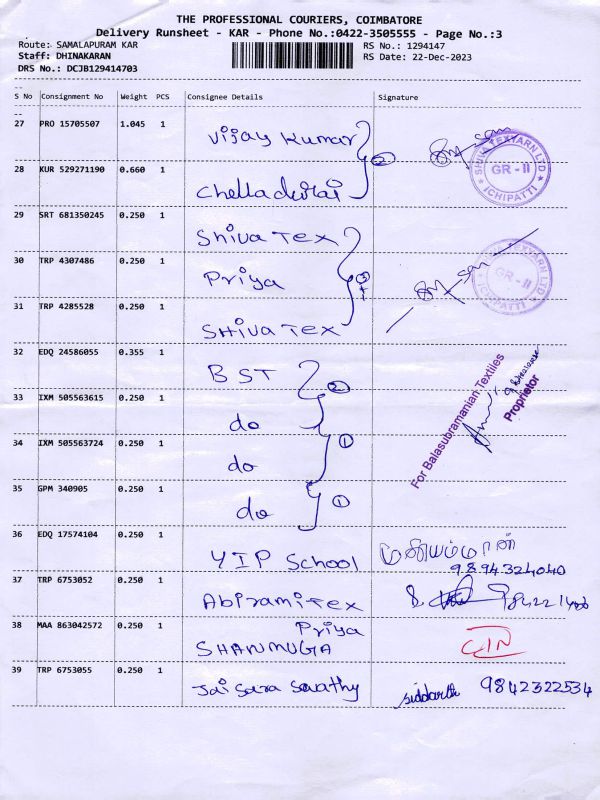 THE PROFESSIONAL COURIERS, COIMBATORE
Delivery Runsheet - KAR - Phone No.:0422-3505555 - Page No.:3
Route: SAMALAPURAM KAR
RS No.: 1294147
Staff: DHINAKARAN
RS Date: 22-Dec-2023
DRS No.: DCJB129414703
S No Consignment No Weight PCS Consignee Details Signature
27 PRO 15705507 1.045 1 Vijay Kumar
28 KUR 529271190 0.660 1 Chelladurai
② 
SHIVA TEXYARN LTD
GR - II
ICHIPATTI
29 SRT 681350245 0.250 1 Shiva Tex
30 TRP 4307486 0.250 1 Priya
31 TRP 4285528 0.250 1 SHIVA TEX
SHIVA TEXYARN LTD
GR - II
ICHIPATTI
32 EDQ 24586055 0.355 1 BST ②
33 IXM 505563615 0.250 1 do
34 IXM 505563724 0.250 1 do ①
35 GPM 340905 0.250 1 do ①
For Balasubramanian Textiles
Proprietor
36 EDQ 17574104 0.250 1 YIP School
9894324040
37 TRP 6753052 0.250 1 Abirami Tex
38 MAA 863042572 0.250 1 Priya
SHANMUGA
39 TRP 6753055 0.250 1 Jai Sara Swathy siddarth 9842322534